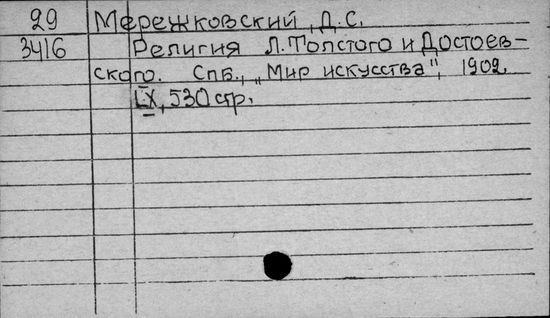 29 Мережковский, Д.С.
3416 Религия Л.Толстого и Достоев-
ского. Спб., „Мир искусства", 1902.
LX, 530 стр.